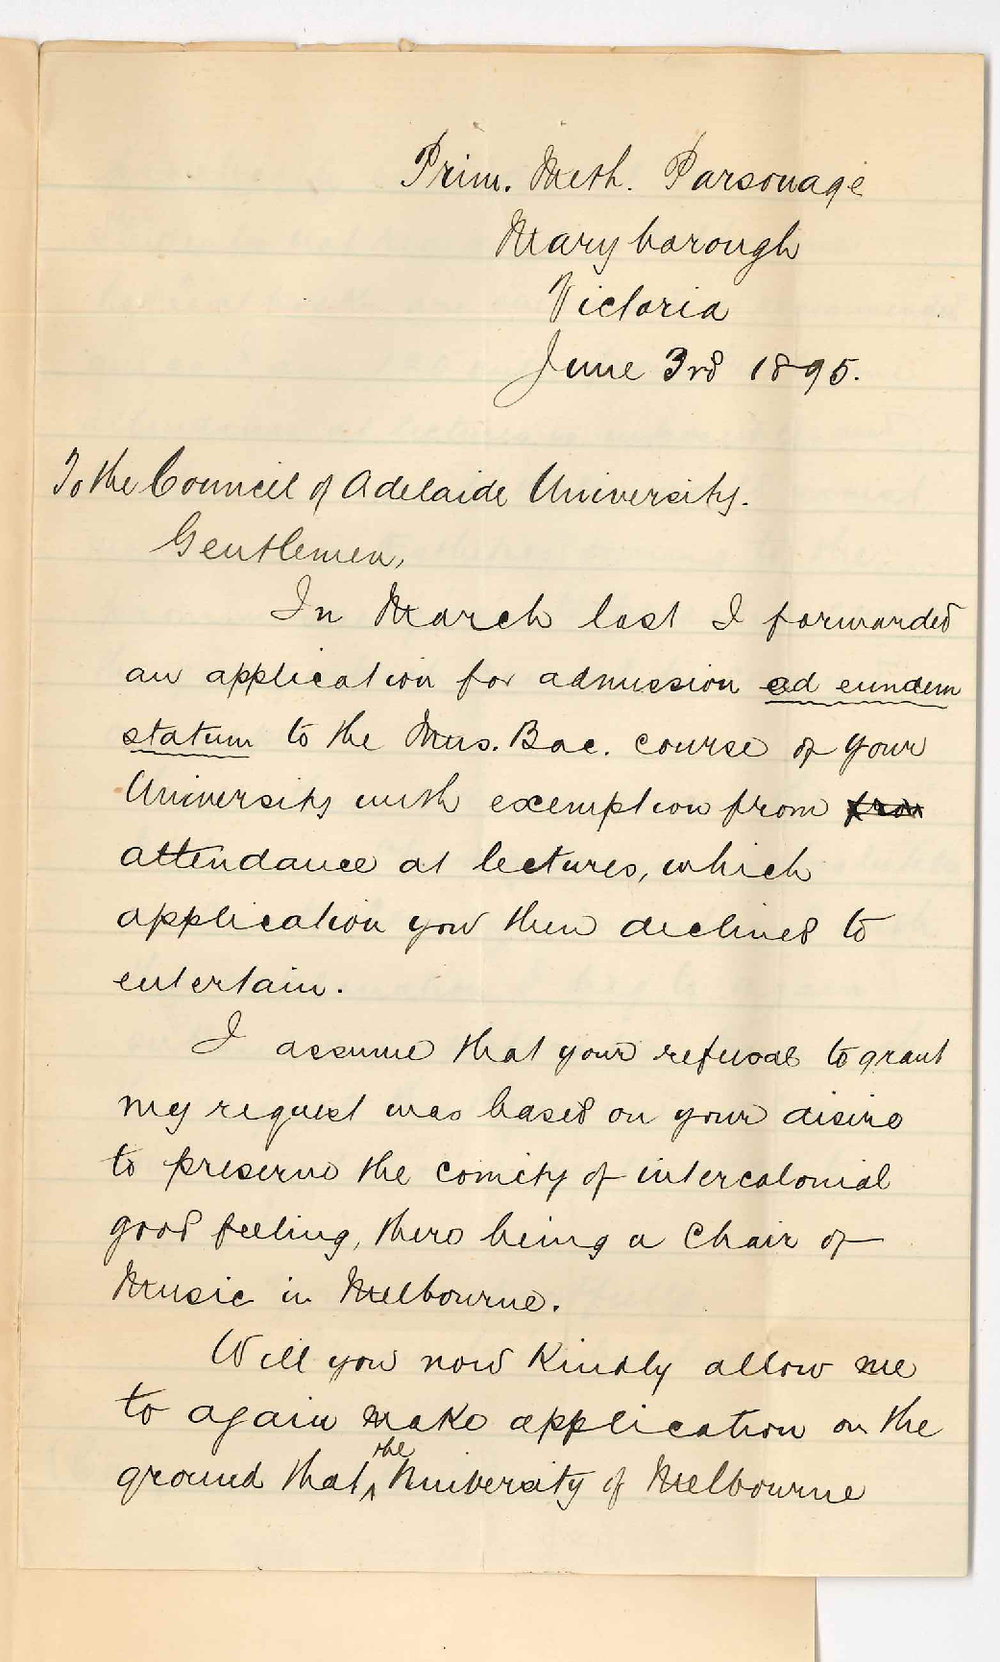 Prim. Meth. Parsonage
Maryborough
Victoria
June 3rd 1895.
To the Council of Adelaide University.
Gentlemen,
In March last I forwarded
an application for admission ad eundem
statum to the Mus. Bac. course of your
University with exemption from from
attendance at lectures, which
application you then declined to
entertain.
I assume that your refusal to grant
my request was based on your desire
to preserve the comity of intercolonial
good feeling, there being a Chair of
Music in Melbourne.
Will you now kindly allow me
to again make application on the
ground that the University of Melbourne